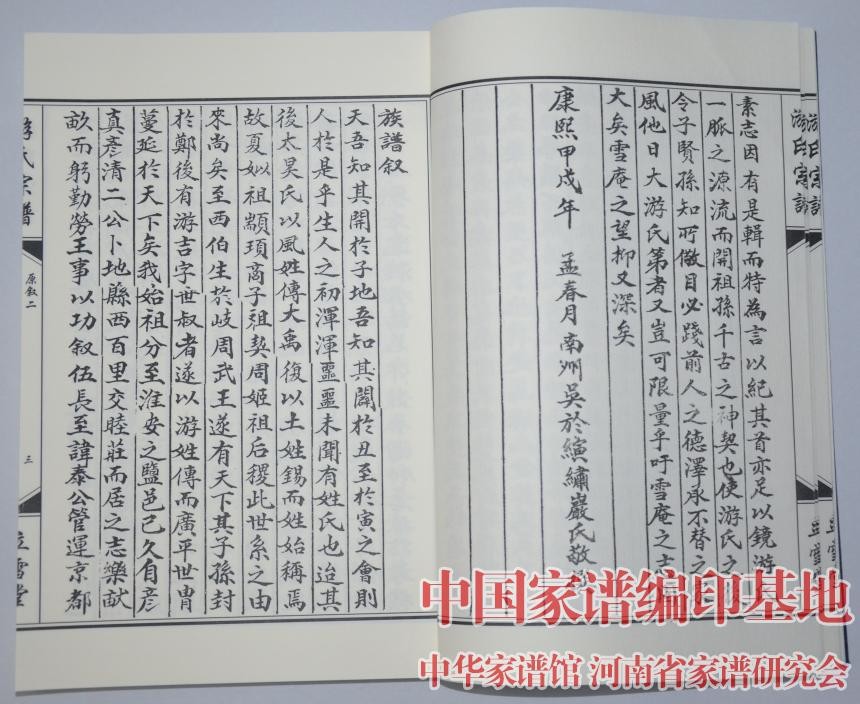 游氏宗譜
素志因有是輯而特為言以紀其首亦足以鏡游氏
一脈之源流而開祖孫千古之神契也使游氏之後
令子賢孫知所儆目必踐前人之德澤承不替之家
風他日大游氏第者又豈可限量乎吁雪庵之志
大矣雪庵之望抑又深矣
康熙甲戌年 孟春月南州吳於縯繡巖氏敬
族譜叙
天吾知其開於子地吾知其闢於丑至於寅之會則
人於是乎生人之初渾渾噩噩未聞有姓氏也迨其
後太昊氏以風姓傳大禹復以土姓錫而姓始稱焉
故夏姒祖顓頊商子祖契周姬祖后稷此世系之由
來尚矣至西伯生於岐周武王遂有天下其子孫封
於鄭後有游吉字世叔者遂以游姓傳而廣平世胄
蔓延於天下矣我始祖分至淮安之鹽邑已久自彦
真彦清二公卜地縣西百里交睦莊而居之志樂献
畝而躬勤勞王事以功叙伍長至諱泰公管運京都
游氏宗譜
原叙二
三
立雪堂
中国家谱编印基地
中华家谱馆 河南省家谱研究会